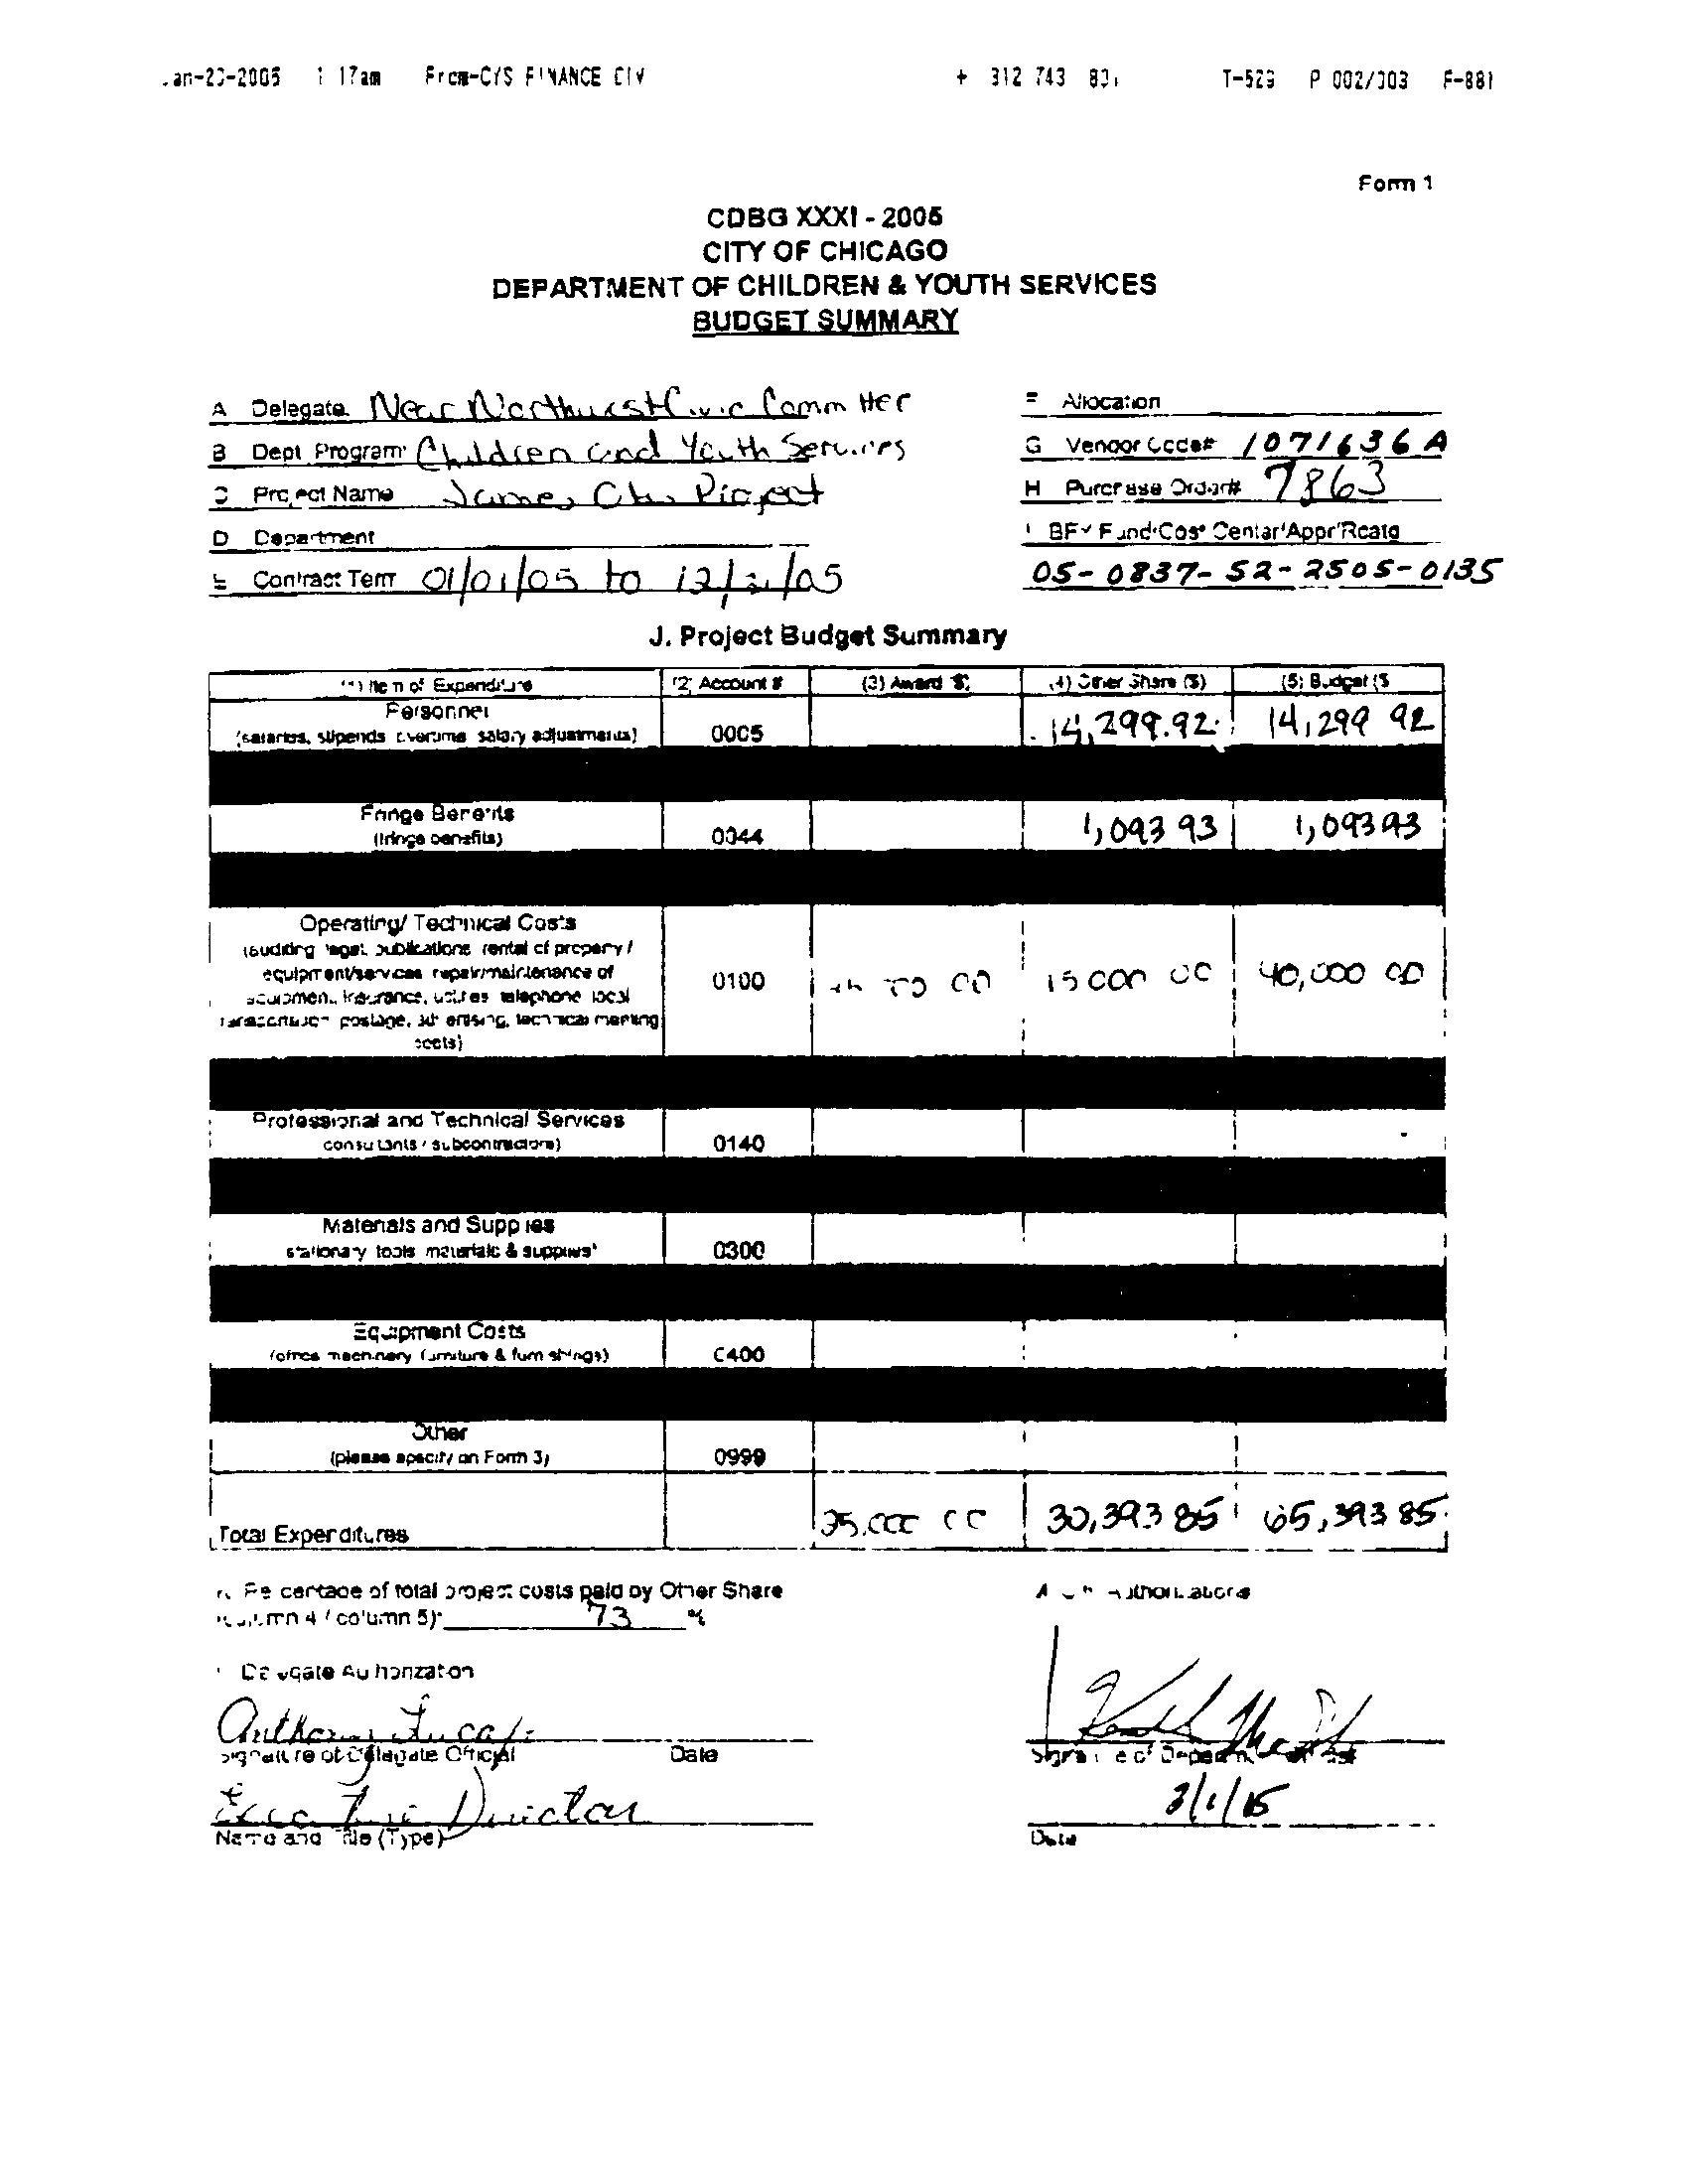 1 17am From-CYS FINANCE DIV + 312 743 T-529 P 002/003 F-881
Form 1
CDBG XXXI - 2005
CITY OF CHICAGO
DEPARTMENT OF CHILDREN & YOUTH SERVICES
BUDGET SUMMARY
A Delegate Near Northwest Civic Committee
Allocation
B Dept Program Children and Youth Services
G Vendor Code# 1071636 A
Project Name James Project
H Purchase Order# 7863
D Department
BFY Fund Cost Center Appr Rcatg
Contract Term 01/01/05 to 12/31/05
05-0837-52-2505-0135
J. Project Budget Summary
(1) Item of Expenditure (2) Account # (3) Award $ (4) Other Share ($) (5) Budget ($
Personnel
(salaries, stipends overtime salary adjustments) 0005 14,299.92 14,299 92
Fringe Benefits
(fringe benefits) 0044 1,093 93 1,093 93
Operating/ Technical Costs
(auditing legal, publications rental of property /
equipment/services repair/maintenance of
equipment, insurance, utilities telephone local
transportation postage, advertising, technical meeting
costs) 0100 15 000 00 40,000 00
Professional and Technical Services
consultants / subcontractors) 0140
Materials and Supplies
stationary tools materials & supplies 0300
Equipment Costs
(office machinery furniture & furnishings) 0400
Other
(please specify on Form 3) 0999
Total Expenditures 30,393 85 65,393 85
Percentage of total project costs paid by Other Share
(column 4 / column 5) 73 %
Authorizations
Delegate Authorization
Anthony
Signature of Delegate Official Date
Signature of Department
Executive Director
Name and Title (Type)
Date